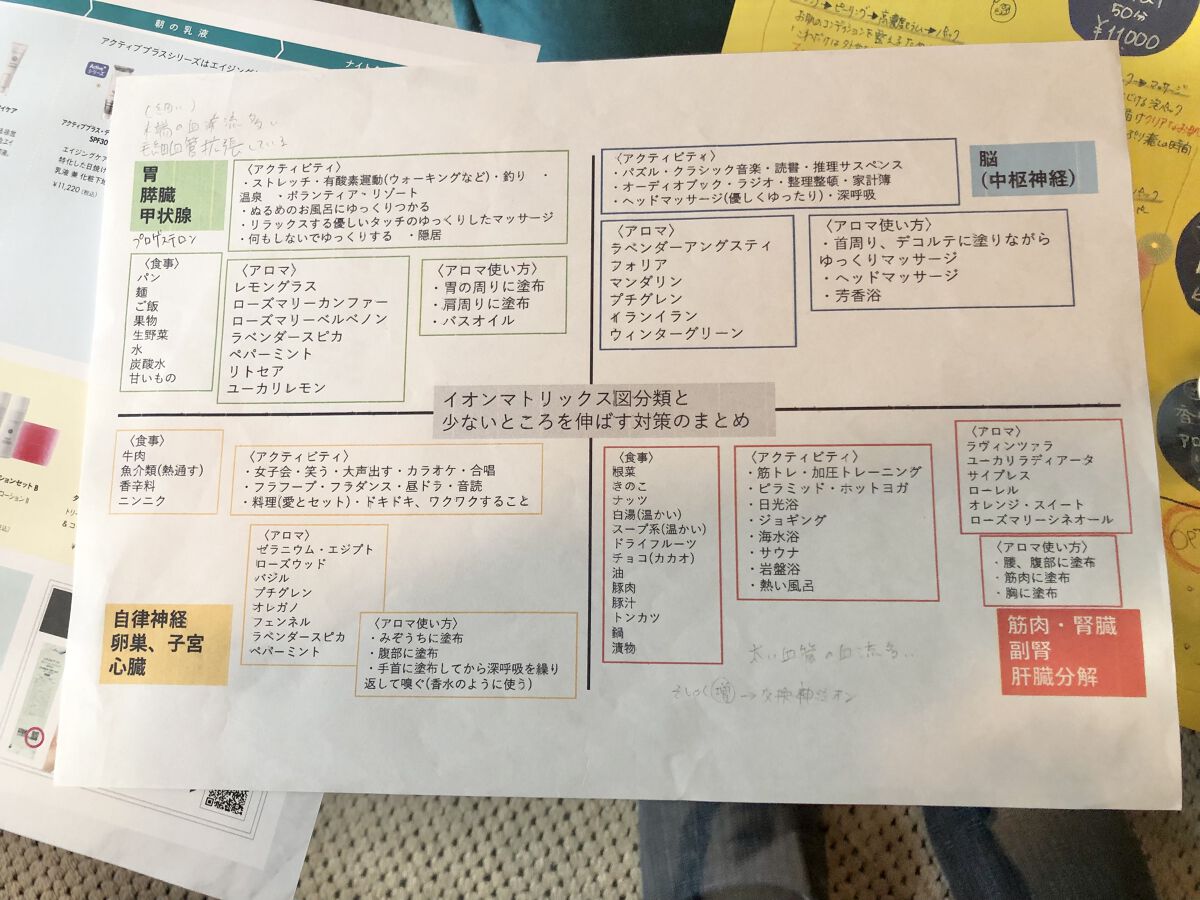 朝の乳液
ナイト
アクティブプラスシリーズはエイジング
Active+
シリーズ
アクティブプラス・デ
SPF30
エイジングケア
特化した日焼け
乳液 兼 化粧下地
¥11,220(税込)
50分
¥11,000
(細い)
末端の血液流多い
毛細血管拡張している
胃
膵臓
甲状腺
プロゲステロン
〈アクティビティ〉
・ストレッチ・有酸素運動(ウォーキングなど)・釣り ・
温泉 ・ボランティア・リゾート
・ぬるめのお風呂にゆっくりつかる
・リラックスする優しいタッチのゆっくりしたマッサージ
・何もしないでゆっくりする ・隠居
〈食事〉
パン
麺
ご飯
果物
生野菜
水
炭酸水
甘いもの
〈アロマ〉
レモングラス
ローズマリーカンファー
ローズマリーベルベノン
ラベンダースピカ
ペパーミント
リトセア
ユーカリレモン
〈アロマ使い方〉
・胃の周りに塗布
・肩周りに塗布
・バスオイル
〈アクティビティ〉
・パズル・クラシック音楽・読書・推理サスペンス
・オーディオブック・ラジオ・整理整頓・家計簿
・ヘッドマッサージ(優しくゆったり)・深呼吸
脳
(中枢神経)
〈アロマ〉
ラベンダーアングスティ
フォリア
マンダリン
プチグレン
イランイラン
ウィンターグリーン
〈アロマ使い方〉
・首周り、デコルテに塗りながら
ゆっくりマッサージ
・ヘッドマッサージ
・芳香浴
イオンマトリックス図分類と
少ないところを伸ばす対策のまとめ
〈食事〉
牛肉
魚介類(熱通す)
香辛料
ニンニク
〈アクティビティ〉
・女子会・笑う・大声出す・カラオケ・合唱
・フラフープ・フラダンス・昼ドラ・音読
・料理(愛とセット)・ドキドキ、ワクワクすること
〈アロマ〉
ゼラニウム・エジプト
ローズウッド
バジル
プチグレン
オレガノ
フェンネル
ラベンダースピカ
ペパーミント
〈アロマ使い方〉
・みぞうちに塗布
・腹部に塗布
・手首に塗布してから深呼吸を繰り
返して嗅ぐ(香水のように使う)
自律神経
卵巣、子宮
心臓
〈食事〉
根菜
きのこ
ナッツ
白湯(温かい)
スープ系(温かい)
ドライフルーツ
チョコ(カカオ)
油
豚肉
豚汁
トンカツ
鍋
漬物
〈アクティビティ〉
・筋トレ・加圧トレーニング
・ピラミッド・ホットヨガ
・日光浴
・ジョギング
・海水浴
・サウナ
・岩盤浴
・熱い風呂
〈アロマ〉
ラヴィンツァラ
ユーカリラディアータ
サイプレス
ローレル
オレンジ・スイート
ローズマリーシネオール
〈アロマ使い方〉
・腰、腹部に塗布
・筋肉に塗布
・胸に塗布
筋肉・腎臓
副腎
肝臓分解
太い血管の血流多い